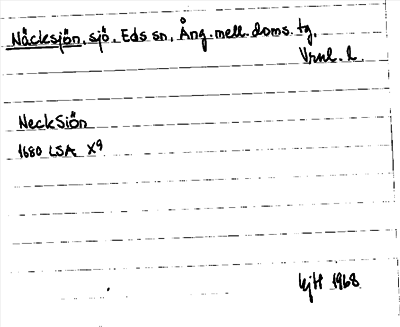 Näcksjön, sjö, Eds sn, Ång. mell. doms. tg.
Vrnl. l.
NeckSiön
1680 LSA X9
KjH 1968